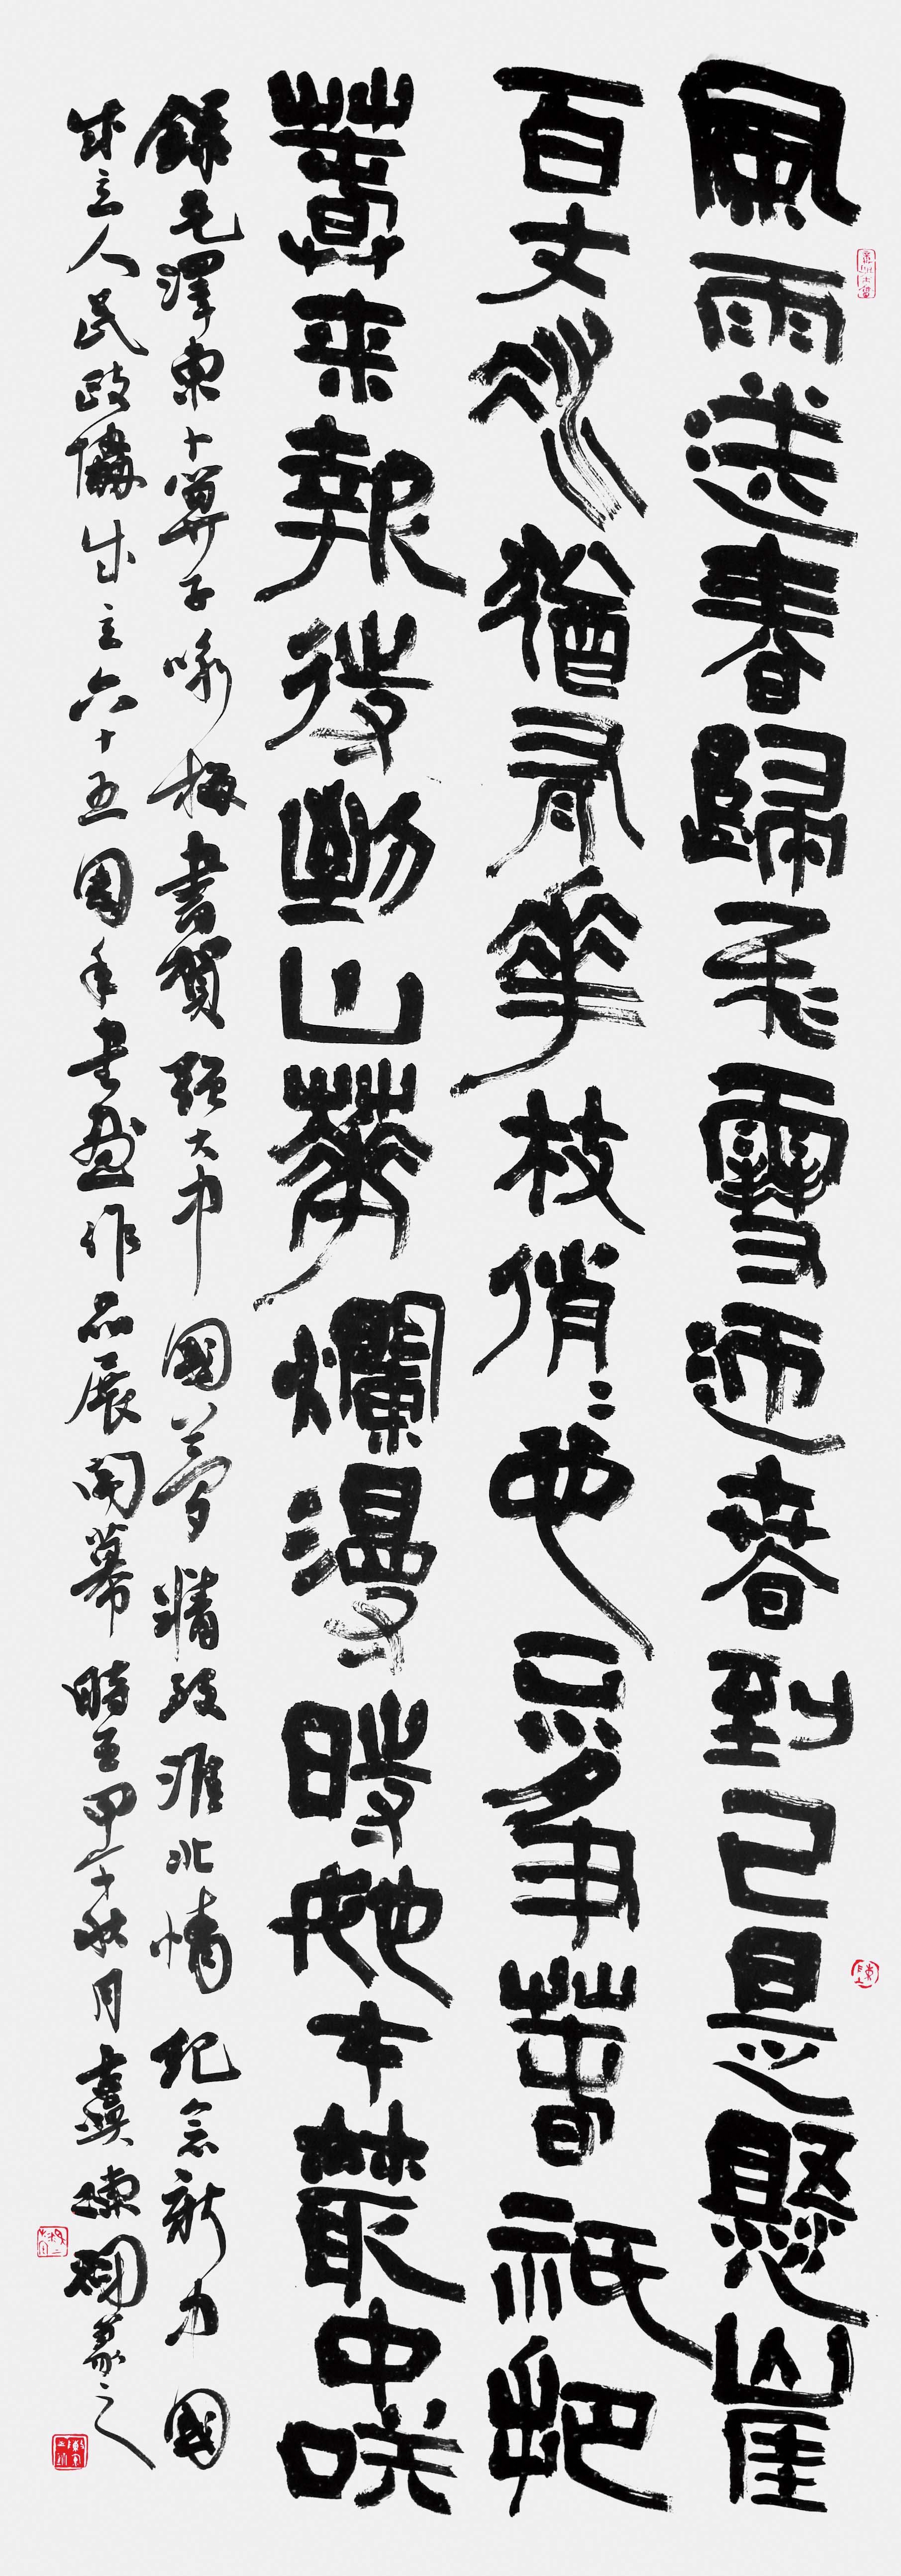 風雨送春歸飛雪迎春到已是懸崖
百丈冰猶有華枝俏俏也不爭春祇把
春來報待到山華爛漫時她在叢中咲
錄毛澤東卜算子咏梅書賀強大中國夢精致淮北情紀念新中國
成立人民政協成立六十五周年書畫作品展開幕時在甲午秋月